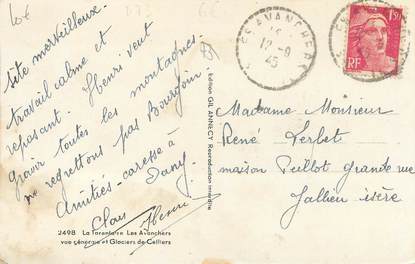 10€
Site merveilleux.
travail calme et
reposant. Henri veut
gravir toutes les montagnes.
ne regrettons pas Bourgoin.
Amitiés - caresse à
Dany.
Henri
2498 La Tarentaise Les Avanchers
vue générale et Glaciers de Celliers
Edition GIL ANNECY Reproduction interdite
LES AVANCHERS
12-9
45
1F50
RF
Madame Monsieur
René Lerbet
maison Peillot grande rue
Jallieu isère